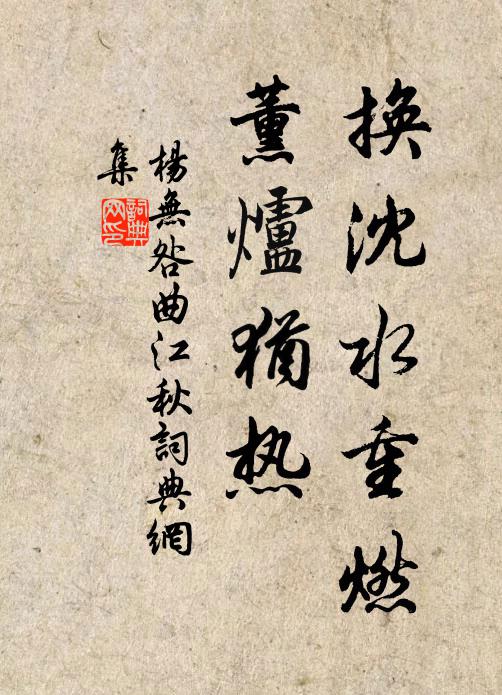 換沈水重燃
薰爐猶热
楊無咎曲江秋詞典網
集
詞典网印